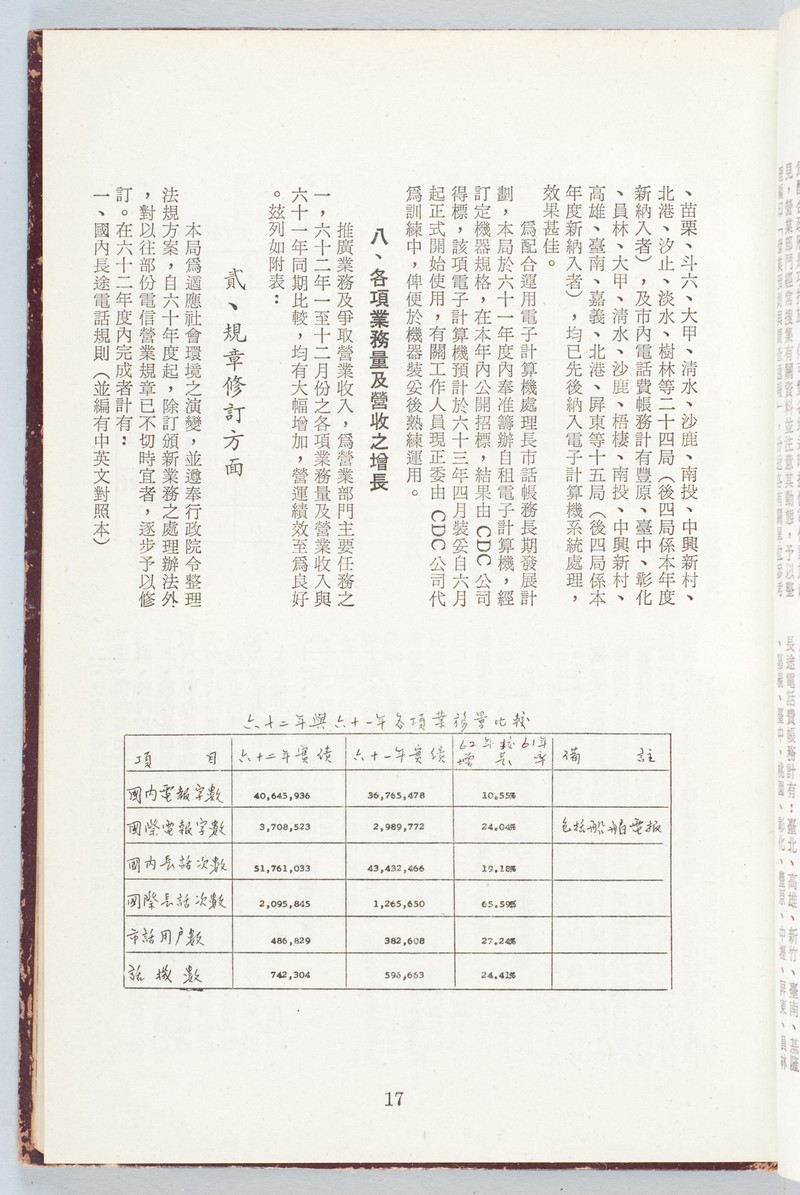 、苗栗、斗六、大甲、清水、沙鹿、南投、中興新村、
北港、汐止、淡水、樹林等二十四局（後四局係本年度
新納入者），及市內電話費帳務計有豐原、臺中、彰化
、員林、大甲、清水、沙鹿、梧棲、南投、中興新村、
高雄、臺南、嘉義、北港、屏東等十五局（後四局係本
年度新納入者），均已先後納入電子計算機系統處理，
效果甚佳。
爲配合運用電子計算機處理長市話帳務長期發展計
劃，本局於六十一年度內奉准籌辦自租電子計算機，經
訂定機器規格，在本年內公開招標，結果由CDC公司
得標，該項電子計算機預計於六十三年四月裝妥自六月
起正式開始使用，有關工作人員現正委由CDC公司代
爲訓練中，俾便於機器裝妥後熟練運用。
八、各項業務量及營收之增長
推廣業務及爭取營業收入，爲營業部門主要任務之
一，六十二年一至十二月份之各項業務量及營業收入與
六十一年同期比較，均有大幅增加，營運績效至爲良好
。玆列如附表：
貳、規章修訂方面
本局爲適應社會環境之演變，並遵奉行政院令整理
法規方案，自六十年度起，除訂頒新業務之處理辦法外
，對以往部份電信營業規章已不切時宜者，逐步予以修
訂。在六十二年度內完成者計有：
一、國內長途電話規則（並編有中英文對照本）
六十二年與六十一年各項業務量比較
項目 六十二年實績 六十一年實績 62年較61年增長率 備註
國內電報字數 40,645,936 36,765,478 10.55%
國際電報字數 3,708,523 2,989,772 24.04% 包括船舶電報
國內長話次數 51,761,033 43,432,466 19.18%
國際長話次數 2,095,845 1,265,650 65.59%
市話用戶數 486,829 382,608 27.24%
話機數 742,304 596,663 24.41%
17
長途電話費帳務計有：臺北、高雄、新竹、臺南、基隆
、嘉義、臺中、桃園、彰化、豐原、中壢、屏東、員林